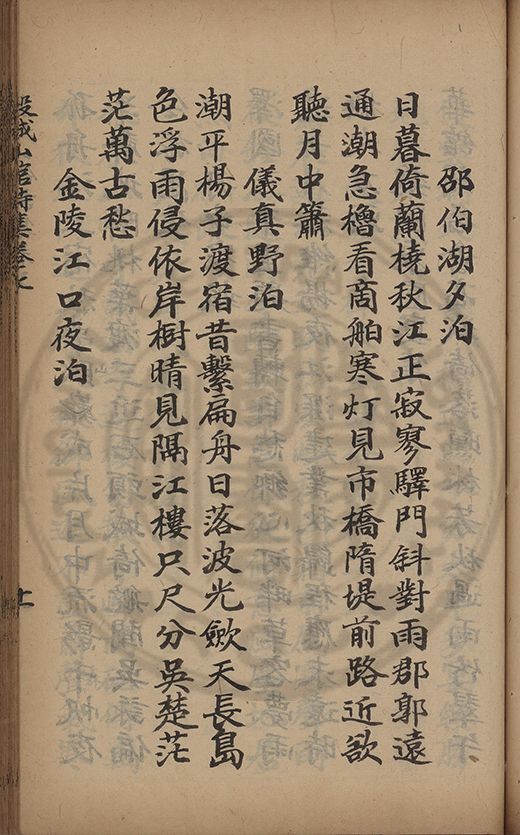 邵伯湖夕泊
日暮倚蘭橈秋江正寂寥驛門斜對雨郡郭遠
通潮急櫓看商舶寒灯見市橋隋堤前路近欲
聽月中簫
儀真野泊
潮平楊子渡宿昔繫扁舟日落波光歛天長島
色浮雨侵依岸樹晴見隔江樓只尺分吳楚茫
茫萬古愁
金陵江口夜泊